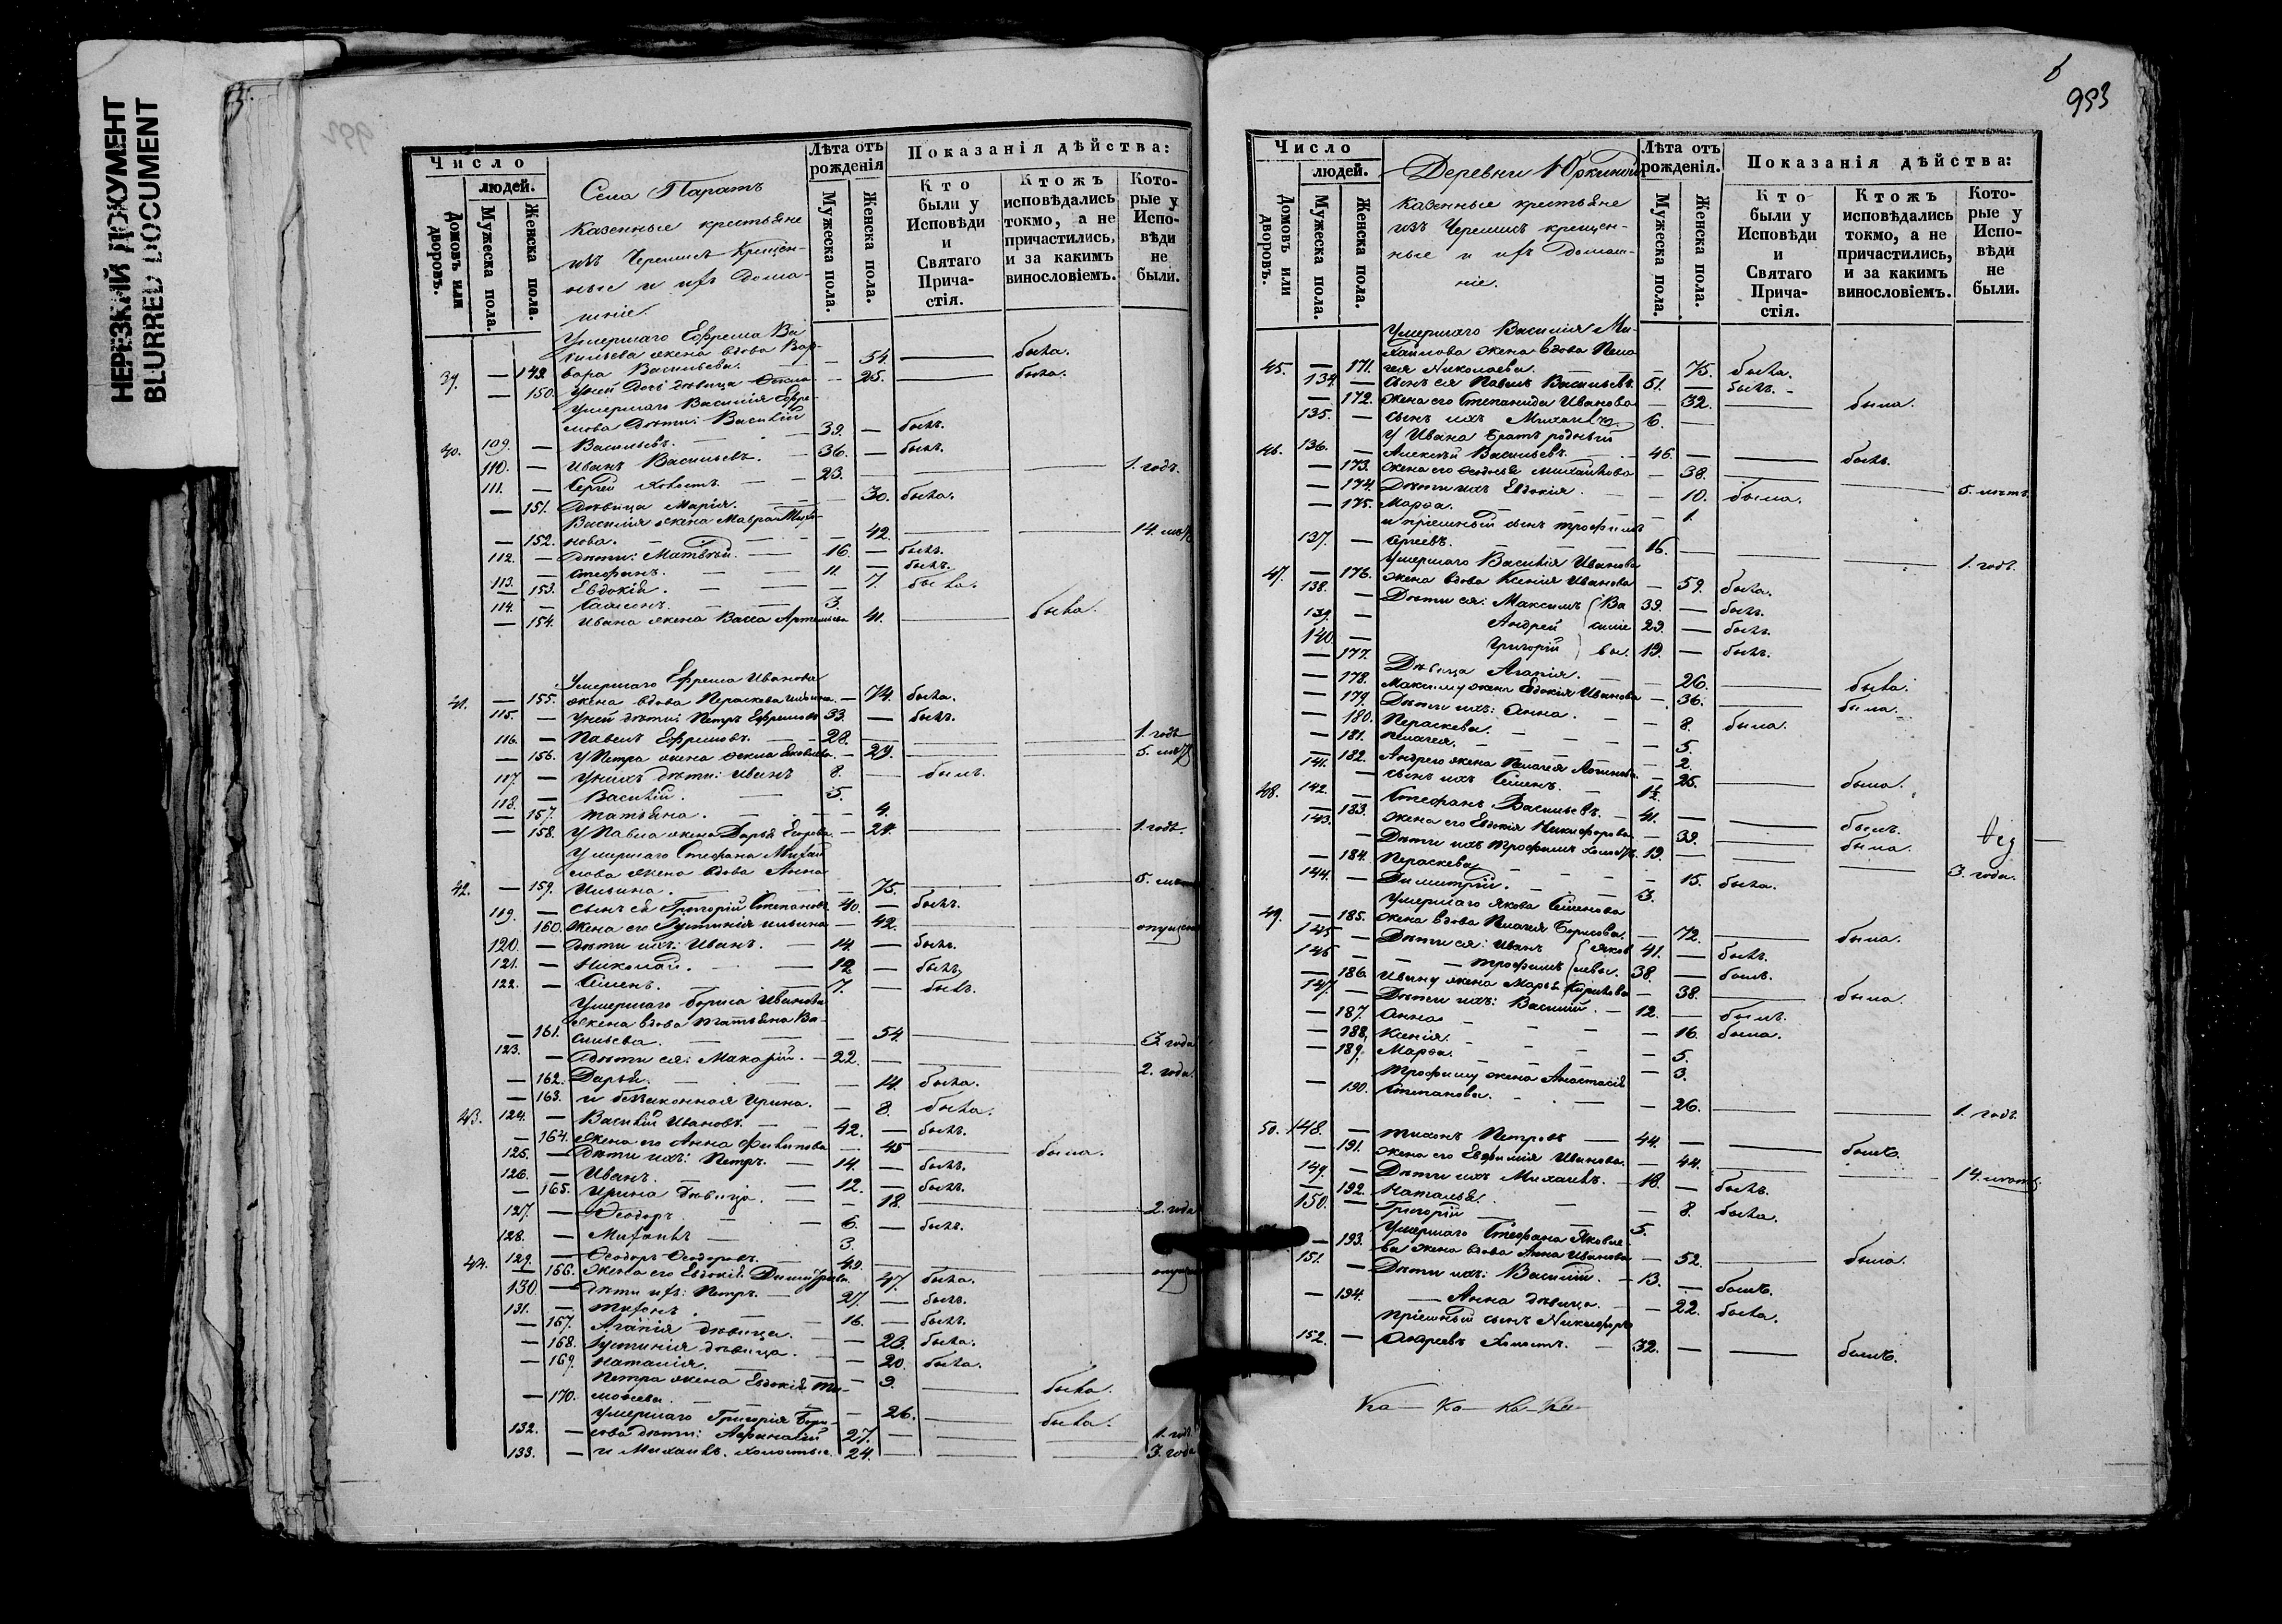 НЕРЕЗКИЙ ДОКУМЕНТ
BLURRED DOCUMENT
Число
людей.
Домовъ или дворовъ.
Мужеска пола.
Женска пола.
Села Паратъ
казенные крестьяне
изъ Черемисъ крещен-
ные и ихъ домаш-
ніе.
Лѣта отъ рожденія
Мужеска пола.
Женска пола.
Показанія дѣйства:
Кто были у Исповѣди и Святаго Прича-стія.
Ктожъ исповѣдались токмо, а не причастились, и за какимъ винословіемъ.
Кото-рые у Испо-вѣди не были.
Умершаго Ефрема Ва
сильева жена вдова Вар-
39. — 149. вара Васильева. — 54 — была.
— 150. У ней дочь дѣвица — 25. — была.
Умершаго Василія Ефре-
мова дѣти: Василій
40. 109. — Васильевъ. 39. — былъ.
110. — Иванъ Васильевъ. 36. — былъ.
111. — Сергей холостъ 23. — — 1. годъ.
— 151. Дѣвица Марія. — 30. была.
Василія жена Мавра
— 152. нова. — 42. — — 14.
112. — Дѣти: Матвѣй. 16. — былъ.
113. — Стефанъ. 11. — былъ.
— 153. Евдокія. — 7. была.
114. — Самсонъ. 3.
— 154. Ивана жена Васса Артемьева 41. — была.
Умершаго Ефрема Иванова
41. — 155. жена вдова Пераскева Ильина. — 74. была.
115. — У ней дѣти: Петръ Ефремовъ 33. — былъ.
116. — Павелъ Ефремовъ. 28. — — 1. годъ
— 156. У Петра жена Яковлева. — 29. — — 5.
117. — У нихъ дѣти: Иванъ 8. — былъ.
118. — Василій. 5.
— 157. Татьяна. — 4.
— 158. У Павла жена Дарья Егорова. — 24. — — 1. годъ.
Умершаго Стефана Михай
лова жена вдова Анна
42. — 159. Ильина. — 75. — — 5.
119. — Сынъ ея Григорій Степановъ 40. — былъ.
160. Жена его Іустинія Ильина — 42. — — опущен
120. — Дѣти ихъ: Иванъ. 14. — былъ.
121. — Николай. 12 — былъ.
122. — Семенъ. 7. — былъ.
Умершаго Бориса Иванова
жена вдова Татьяна Ва-
— 161. сильева. — 54. — — 3. года
123. — Дѣти ея: Макарій. 22. — — 2. года.
— 162. Дарья. — 14. была.
— 163. и беззаконная Ирина. — 8. была.
43. 124. — Василій Ивановъ. 42. — былъ.
— 164. Жена его Анна Филипова — 45 — была.
125. — Дѣти ихъ: Петръ. 14. — былъ.
126. — Иванъ. 12. — былъ.
— 165. Ирина дѣвица. — 18. — — 2. года
127. — Ѳеодоръ. 6. — былъ.
128. — Михаилъ 3.
44. 129. — Ѳеодоръ Ѳеодоровъ. 49. — —
— 166. Жена его Евдокія Димитріева 47. была.
130. — Дѣти ихъ: Петръ. 27. — былъ.
131. — Тихонъ. 16. — былъ.
— 167. Агапія дѣвица. — 23. была.
— 168. Іустинія дѣвица. — 20. была.
— 169. Наталія. — 9.
Петра жена Евдокія Ти-
— 170. моѳеева. — 26. — была.
Умершаго Григорія Бори-
132. — сова дѣти: Аѳанасій 27. — — 1. годъ
133. — и Михаилъ. холостые. 24. — — 3. года
6
953
Число
людей.
Домовъ или дворовъ.
Мужеска пола.
Женска пола.
Деревни Юркиной
казенные крестьяне
изъ Черемисъ крещен-
ные и ихъ домаш-
ніе.
Лѣта отъ рожденія.
Мужеска пола.
Женска пола.
Показанія дѣйства:
Кто были у Исповѣди и Святаго Прича-стія.
Ктожъ исповѣдались токмо, а не причастились, и за какимъ винословіемъ.
Кото-рые у Испо-вѣди не были.
Умершаго Василія Ми-
хайлова жена вдова Пела-
45. — 171. гея Николаева. — 75. была.
134. — Сынъ ея Павелъ Васильевъ. 51. — былъ.
— 172. Жена его Степанида Иванова — 32. — была.
135. — Сынъ ихъ Михаилъ. 6. —
У Ивана братъ родный
46. 136. — Алексѣй Васильевъ. 46. — — былъ.
— 173. Жена его Ѳеодосья Михайлова — 38. — — 5. лѣтъ.
— 174. Дѣти ихъ Евдокія. — 10. была.
— 175. Марѳа. — 1.
и пріемный сынъ Трофимъ
137. — Сергеевъ. 16. — — 1. годъ.
Умершаго Василія Иванова
47. — 176. жена вдова Ксенія Иванова — 59. была.
138. — Дѣти ея: Максимъ Ва 39. — былъ.
139. — Андрей силье 29. — былъ.
140. — Григорій вы. 19. — былъ.
— 177. Дѣвица Агапія. — 26. — была.
— 178. Максиму жена Евдокія Иванова — 36. — была.
— 179. Дѣти ихъ: Анна. — 8. была.
— 180. Пераскева. — 5.
— 181. Пелагея. — 2.
— 182. Андрею жена Пелагея — 25. — была.
141. — Сынъ ихъ Семенъ. 1½.
48. 142. — Стефанъ Васильевъ. 41. — — былъ.
— 183. Жена его Евдокія Никифорова — 39. — была.
143. — Дѣти ихъ Трофимъ 19. — — 3. года.
— 184. Пераскева — 15. была.
144. — Димитрій. 3.
Умершаго Якова Семенова
49. — 185. жена вдова Пелагея Борисова. — 72. — была.
145 — Дѣти ея: Иванъ Яков 41. — былъ.
146 — Трофимъ левы. 38. — былъ.
— 186. Ивану жена Марья Кирилова — 38. — была.
147. — Дѣти ихъ: Василій. 12. — былъ.
— 187. Анна — 16. была.
— 188. Ксенія. — 5.
— 189. Марѳа. — 3.
Трофиму жена Анастасія
— 190. Степанова. — 26. — — 1. годъ.
50. 148. — Тихонъ Петровъ 44. — — былъ.
— 191. Жена его Евфимія Иванова. — 44. — — 14.
149. — Дѣти ихъ Михаилъ. 18. — былъ.
— 192. Наталья. — 8. была.
150. — Григорій 5.
Умершаго Стефана Яковле-
— 193. ва жена вдова Анна Иванова — 52. — была.
151. — Дѣти ихъ: Василій. 13. — былъ.
— 194. — Анна дѣвица. — 22. была.
Пріемный сынъ Никифоръ
152. — Андреевъ холостъ. 32. — — былъ.